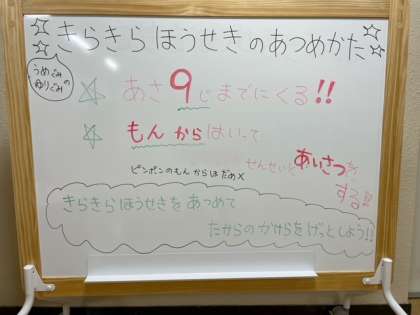 きらきらほうせきのあつめかた
うめぐみの
ゆりぐみ
あさ9じまでにくる!!
もんからはいって
せんせいとあいさつを
する!!
ピンポンのもんからはだめ×
きらきらほうせきをあつめて
たからのかけらをげっとしよう!!